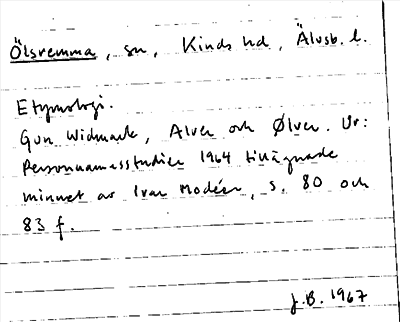 Ölsremma, sn, Kinds hd, Älvsb. l.
Etymologi.
Gun Widmark, Alver och Ølver. Ur:
Personnamsstudier 1964 tillägnade
minnet av Ivar Modéer, s. 80 och
83 f.
J.B. 1967